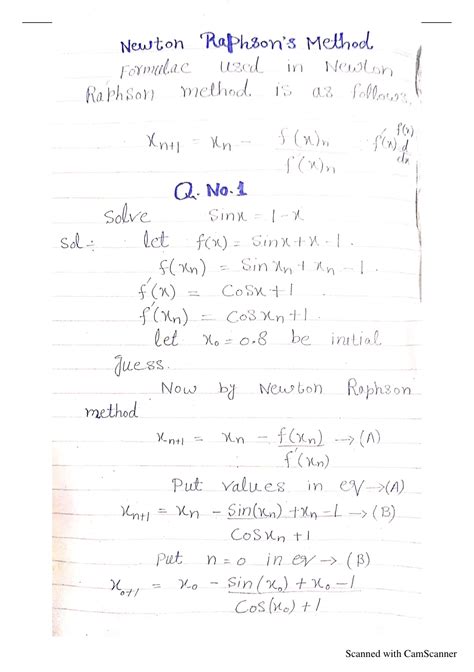 Newton Raphson's Method
Formulae used in Newton
Raphson method is as follows.
xₙ₊₁ = xₙ - f(x)ₙ / f'(x)ₙ
f(x)
f'(x) d/dx
Q. No. 1
Solve Sinx = 1-x
Sol:- let f(x) = Sinx+x-1.
f(xₙ) = Sinxₙ+xₙ-1.
f'(x) = Cosx+1
f'(xₙ) = Cosxₙ+1.
let x₀ = 0.8 be initial
guess.
Now by Newton Rophson
method
xₙ₊₁ = xₙ - f(xₙ) / f'(xₙ) → (A)
Put values in eq → (A)
xₙ₊₁ = xₙ - Sin(xₙ)+xₙ-1 / Cosxₙ+1 → (B)
Put n=0 in eq → (B)
x₀₊₁ = x₀ - Sin(x₀)+x₀-1 / Cos(x₀)+1
Scanned with CamScanner